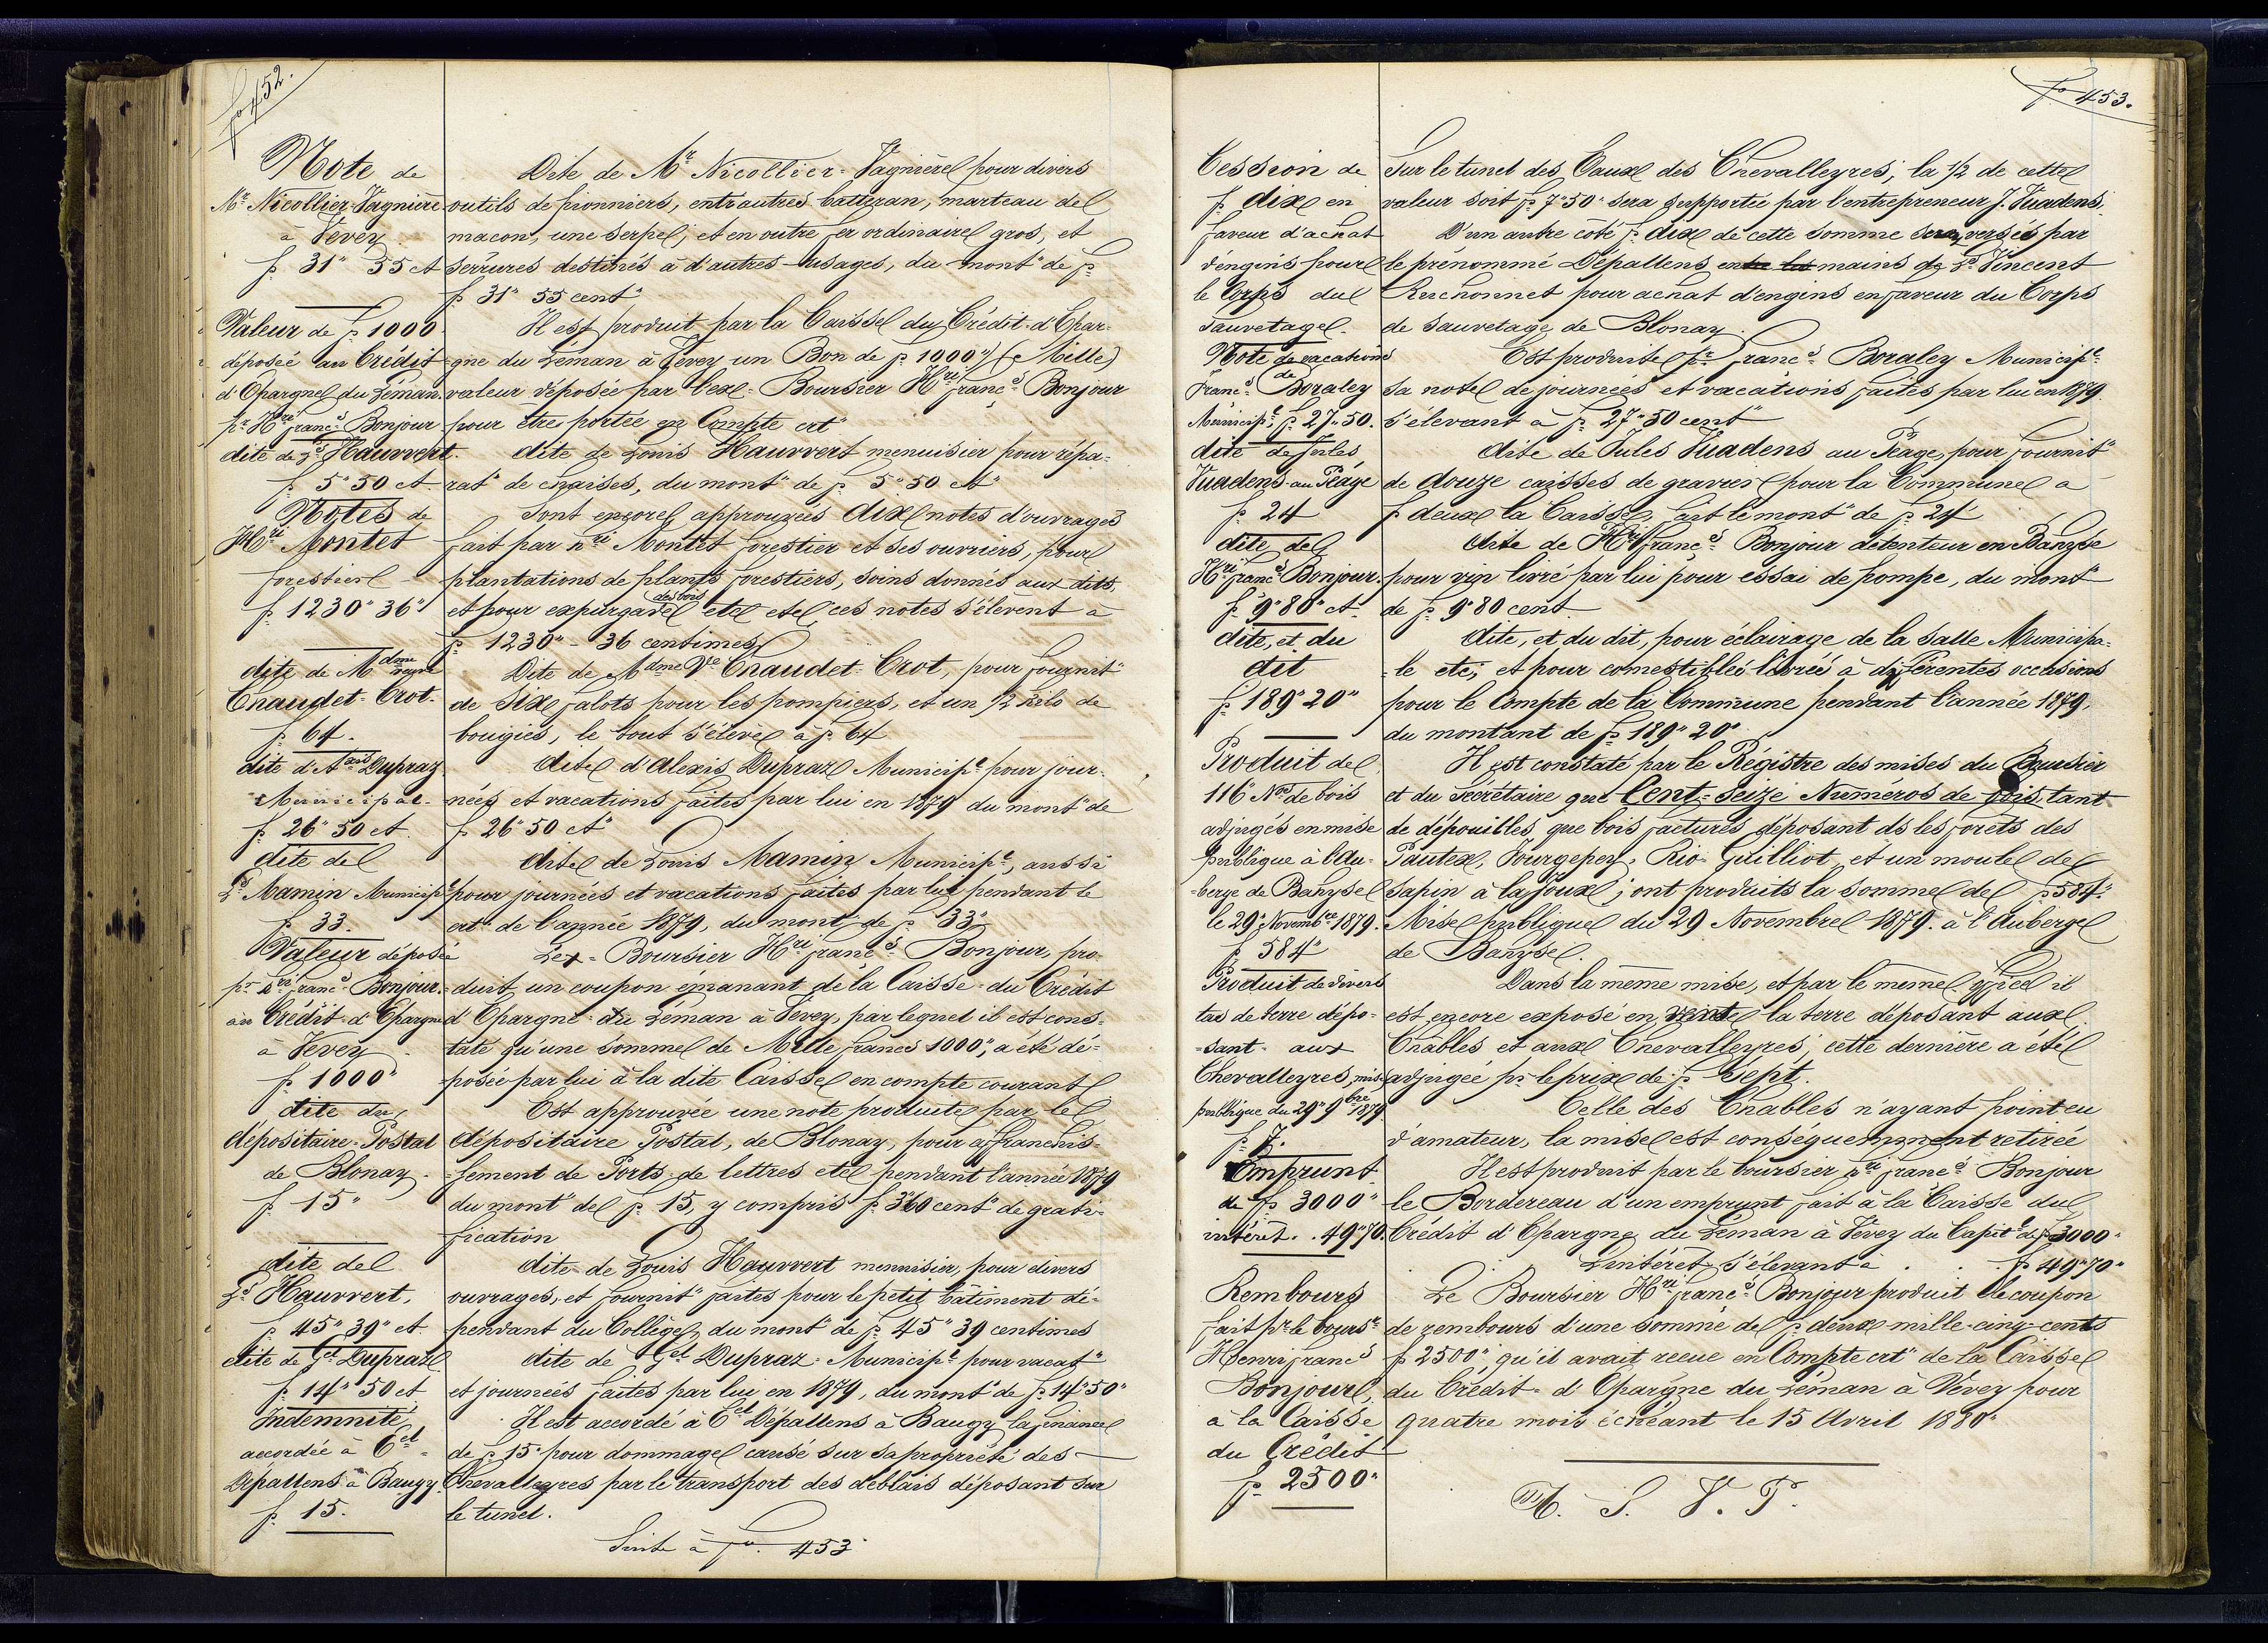 fo 452.
Note de
Mr Nicollier-Vagnière
à Vevey
f. 31" 55 ct
Valeur de fr. 1000.
déposée au Crédit
d'Epargne du Léman.
pr Hri franc.s Bonjour
dite de Ls Hauvvert.
f. 5"50 ct.
Notes de
Hri Montet
forestier
f. 1230"36"
dite de Mdme veuve
Chaudet-Crot.
f. 64.
dite d'A.. Dupraz
Municipal.
f. 26"50 ct.
dite de
Ls Mamin Municipl
f. 33.
Valeur déposée
pr Hri franc.s Bonjour.
au Crédit d'Epargne
à Vevey
f. 1000"
dite du
dépositaire-Postal
de Blonay.
f. 15"
dite de
Ls Hauvvert.
f. 45"39" ct.
dite de Gel Dupraz
f. 14" 50 ct
Indemnité
accordée à Cel
Dépallens à Baugy.
f. 15.
Dite de Mr Nicollier-Vagnière pour divers
outils de pionniers, entr'autres batteran, marteau de
macon, une serpe; et en outre fer ordinaire gros, et
serrures destinés à d'autres usages, du mont" de fr.
f. 31" 55 cent"
Il est produit par la Caisse du Crédit d'Epar-
gne du Léman à Vevey un Bon de fr. 1000" (Mille)
valeur déposée par l'ex-Boursier Hri franc.s Bonjour
pour être portée en Compte crt"
dite de Louis Hauvvert menuisier pour répa-
rat" de chaises, du mont" de fr. 5"50 ct"
Sont encore approuvées dix notes d'ouvrages
fait par Hri Montet forestier et ses ouvriers, pour
plantations de plants forestiers, soins donnés aux dits,
des bois
et pour expurgade etc etc, ces notes s'élèvent à
f. 1230" - 36 centimes
Dite de Mdme Vve Chaudet-Crot, pour fournit"
de six falots pour les pompiers, et un 1/2 kilo de
bougies, le tout s'élève à fr. 64
dite d'Alexis Dupraz Municipl pour jour-
nées et vacations faites par lui en 1879 du mont" de
f. 26"50 ct"
dite de Louis Mamin Municipl, aussi
pour journées et vacations faites par lui pendant le
crt" de l'année 1879, du mont" de fr. 33"
L'ex-Boursier Hri franc.s Bonjour, pro-
duit un coupon émanant de la Caisse du Crédit
d'Epargne du Léman à Vevey, par lequel il est cons-
taté qu'une somme de Mille francs 1000", a été dé-
posée par lui à la dite Caisse en compte courant
Est approuvée une note produite par le
dépositaire Postal, de Blonay, pour affranchis-
sement de Ports de lettres etc pendant l'année 1879
du mont" de fr. 15, y compris f. 3"60 cent" de grati-
fication
dite de Louis Hauvvert menuisier, pour divers
ouvrages, et fournit" faites pour le petit bâtiment dé-
pendant du Collège, du mont" de fr. 45"39 centimes
dite de Gel Dupraz-Municipl pour vacat"
et journées faites par lui en 1879, du mont" de fr. 14"50"
Il est accordé à Cel Dépallens à Baugy la finance
de fr. 15" pour dommage causé sur sa propriété des
Chevalleyres par le transport des déblais déposant sur
le tunel.
Suite à fo. 453
fo 453.
Cession de
f. dix en
faveur d'achat
d'engins pour
le Corps du
sauvetage.
Note de vacations
de
Franc.s Boraley
Municipl. f. 27"50.
dite de Jules
Vuadens au Péage
f. 24
dite de
Hri franc.s Bonjour.
f. 9"80" ct.
dite, et du
dit
f. 189"20"
Produit de
116" Nos de bois
adjugés en mise
publique à l'Au-
-berge de Banyse
le 29 Novembre 1879.
f. 584"
Produit de divers
tas de terre dépo-
-sant aux
Chevalleyres, mise
publique du 29" 9bre 1879
f. 7.
Emprunt
de fr. 3000"
intérêt. . 49"70.
Rembours
fait pr le bours.r
Henri franc.s
Bonjour,
à la Caisse
du Crédit
f. 2500"
Sur le tunel des Eaux des Chevalleyres; la 1/2 de cette
valeur soit fr. 7"50" sera supportée par l'entrepreneur J. Vuadens.
D'un autre côté f. dix de cette somme sera versée par
le prénommé Dépallens entre les mains de Ls Vincent
Ruchonnet pour achat d'engins en faveur du Corps
de sauvetage de Blonay.
Est produite pr Franc.s Boraley Municipl.
sa note de journées et vacations faites par lui en 1879.
s'élevant à fr. 27"50 cent"
dite de Jules Vuadens au Péage, pour fournit"
de douze caisses de gravier pour la Commune a
f. deux la Caisse, fait le mont" de fr. 24"
dite de Hri Franc.s Bonjour détenteur en Banyse
pour vin livré par lui pour essai de pompe, du mont"
de fr. 9"80 cent
dite, et du dit, pour éclairage de la salle Municipa-
-le etc; et pour comestibles livrés à différentes occasions
pour le Compte de la Commune pendant l'année 1879,
du montant de fr. 189"20"
Il est constaté par le Régistre des mises du Boursier
et du Secrétaire que Cent-seize Numéros de bois, tant
de dépouilles que bois facturés déposant ds les forets des
Pautex, Tourgepey, Rio-Guilliot, et un moule de
sapin à la Joux; ont produits la somme de fr. 584"
Mise publique du 29 Novembre 1879. à l'Auberge
de Banyse.
Dans la même mise, et par le même office il
est encore exposé en vente la terre déposant aux
Chables et aux Chevalleyres, cette dernière a été
adjugée pr le prix de fr. Sept.
Celle des Chables n'ayant point eu
d'amateur, la mise est conséquemment retirée
Il est produit par le boursier Hri franc.s Bonjour
le Bordereau d'un emprunt fait à la Caisse du
Crédit d'Epargne du Léman à Vevey du Capit.l de fr. 3000"
L'intérêt s'élevant à . . fr. 49"70"
Le Boursier Hri franc.s Bonjour produit le coupon
de rembours d'une somme de fr. deux mille-cinq-cents
f. 2500", qu'il avait reçue en Compte crt" de la Caisse
du Crédit d'Epargne du Léman à Vevey pour
quatre mois échéant le 15 Avril 1880"
T. S. V. P.